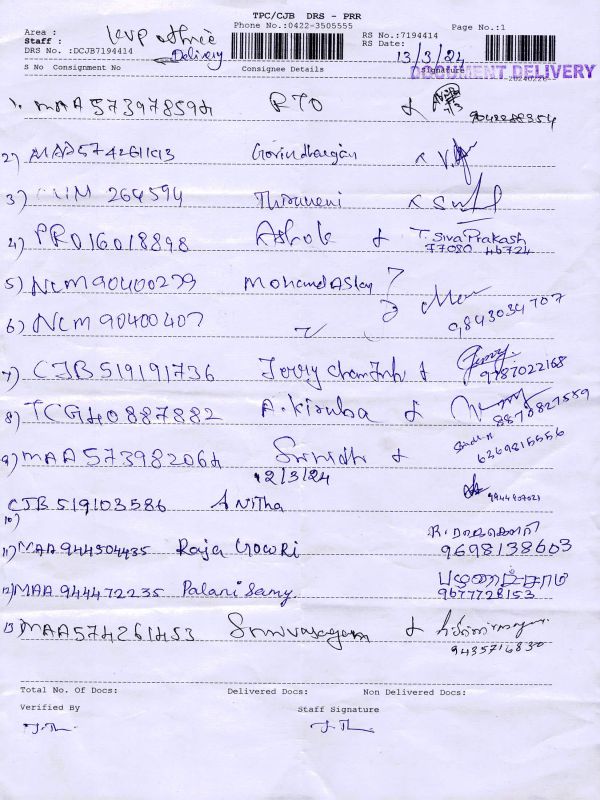 TPC/CJB DRS - PRR
Phone No.:0422-3505555
Page No.:1
Area :
Staff : Delivery
DRS No. :DCJB7194414
RS No.:7194414
RS Date: 13/3/24
S No Consignment No Consignee Details Signature
DOCUMENT DELIVERY
1. MAA573978594 RTO
9042288354
2) MAA574261193 Govindhargan
3) 264594 Thiruveni
4) PR016018898 Ashok T. Siva Prakash
77080 46724
5) NCM90400279 Mohamed Aslay
6) NCM90400407 9843034707
7) CJB519191736 Jerry 9787022168
8) TCG40887882 A. Kiruba 8870827559
9) MAA573982064 Srinidhi 6369815556
12/3/24
CJB519103586 Anitha 9944907021
10)
11) MAA944304435 Raja Gowri 9698138603
12) MAA944472235 Palani Samy பழனிச்சாமி
9677728153
13 MAA574261453 Srinivasagam
9435716830
Total No. Of Docs: Delivered Docs: Non Delivered Docs:
Verified By Staff Signature